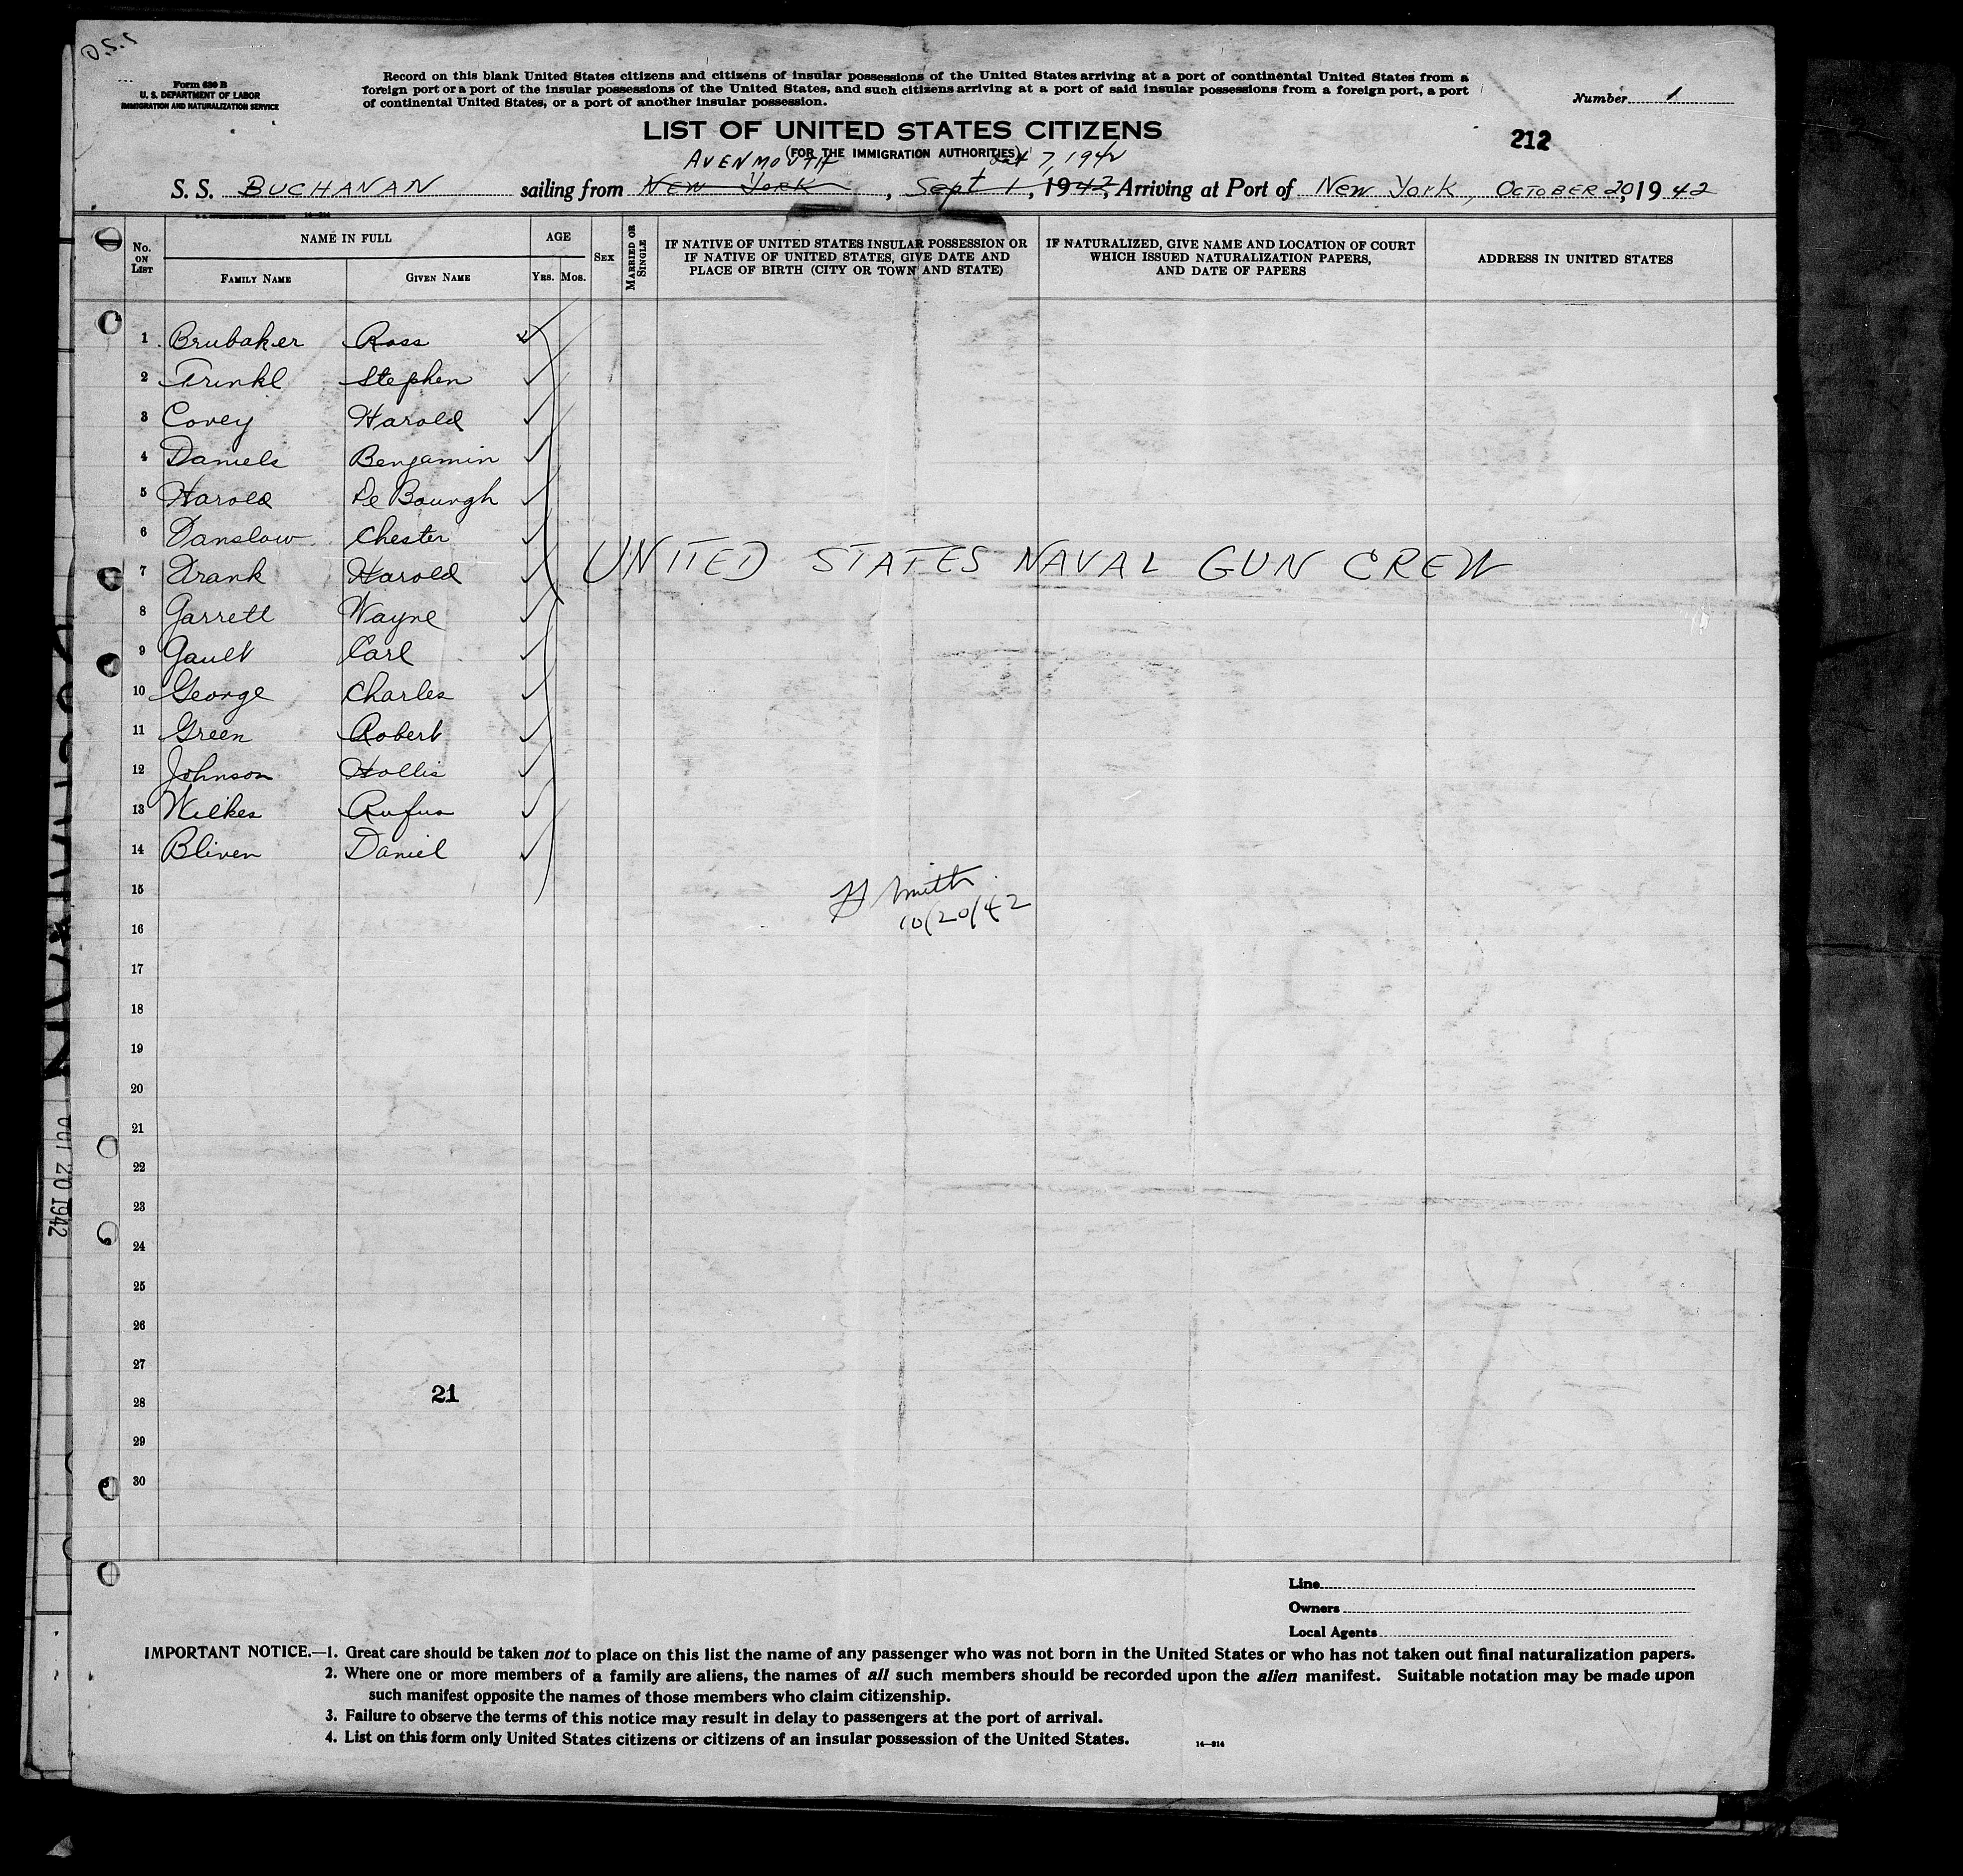 Form 630 B
U. S. DEPARTMENT OF LABOR
IMMIGRATION AND NATURALIZATION SERVICE
Record on this blank United States citizens and citizens of insular possessions of the United States arriving at a port of continental United States from a
foreign port or a port of the insular possessions of the United States, and such citizens arriving at a port of said insular possessions from a foreign port, a port
of continental United States, or a port of another insular possession.
Number 1
LIST OF UNITED STATES CITIZENS
212
(FOR THE IMMIGRATION AUTHORITIES)
AVENMOUTH Oct 7, 1942
S. S. BUCHANAN sailing from New York, Sept 1, 1942, Arriving at Port of New York, OCTOBER 20, 1942
No. ON LIST
NAME IN FULL
FAMILY NAME
GIVEN NAME
AGE
YRS. MOS.
SEX
MARRIED OR SINGLE
IF NATIVE OF UNITED STATES INSULAR POSSESSION OR
IF NATIVE OF UNITED STATES, GIVE DATE AND
PLACE OF BIRTH (CITY OR TOWN AND STATE)
IF NATURALIZED, GIVE NAME AND LOCATION OF COURT
WHICH ISSUED NATURALIZATION PAPERS,
AND DATE OF PAPERS
ADDRESS IN UNITED STATES
1 Brubaker Ross
2 Trinkl Stephen
3 Covey Harold
4 Daniels Benjamin
5 Harold De Bourgh
6 Danslow Chester
7 Drank Harold
UNITED STATES NAVAL GUN CREW
8 Garrett Wayne
9 Gault Carl
10 George Charles
11 Green Robert
12 Johnson Hollis
13 Wilkes Rufus
14 Bliven Daniel
15
H Smith
10/20/42
16
17
18
19
20
21
22
23
24
25
26
27
28
21
29
30
OCT 20 1942
Line
Owners
Local Agents
IMPORTANT NOTICE.—1. Great care should be taken not to place on this list the name of any passenger who was not born in the United States or who has not taken out final naturalization papers.
2. Where one or more members of a family are aliens, the names of all such members should be recorded upon the alien manifest. Suitable notation may be made upon
such manifest opposite the names of those members who claim citizenship.
3. Failure to observe the terms of this notice may result in delay to passengers at the port of arrival.
4. List on this form only United States citizens or citizens of an insular possession of the United States.
14—314